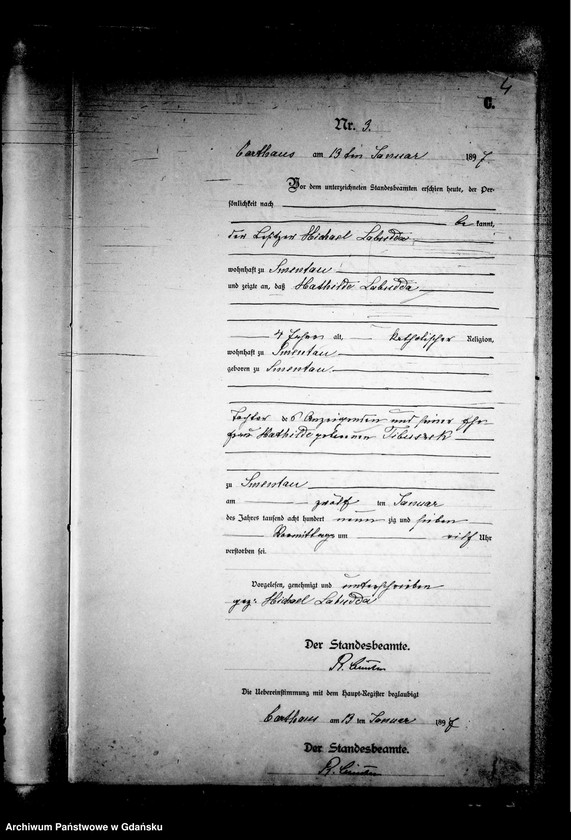 4
C.
Nr. 3.
Carthaus am 13 ten Januar 1897
Vor dem unterzeichneten Standesbeamten erschien heute, der Per-
sönlichkeit nach
be kannt,
der Besitzer Michael Labudda
wohnhaft zu Smentau
und zeigte an, daß Mathilde Labudda
4 Jahre alt, katholischer Religion,
wohnhaft zu Smentau
geboren zu Smentau
Tochter des Anzeigenden und seiner Ehe-
frau Mathilde geborenen
zu Smentau
am zwölf ten Januar
des Jahres tausend acht hundert neun zig und sieben
Vormittags um elf Uhr
verstorben sei.
Vorgelesen, genehmigt und unterschrieben
gez: Michael Labudda
Der Standesbeamte.
Die Uebereinstimmung mit dem Haupt-Register beglaubigt
Carthaus am 13 ten Januar 1897
Der Standesbeamte.
Archiwum Państwowe w Gdańsku